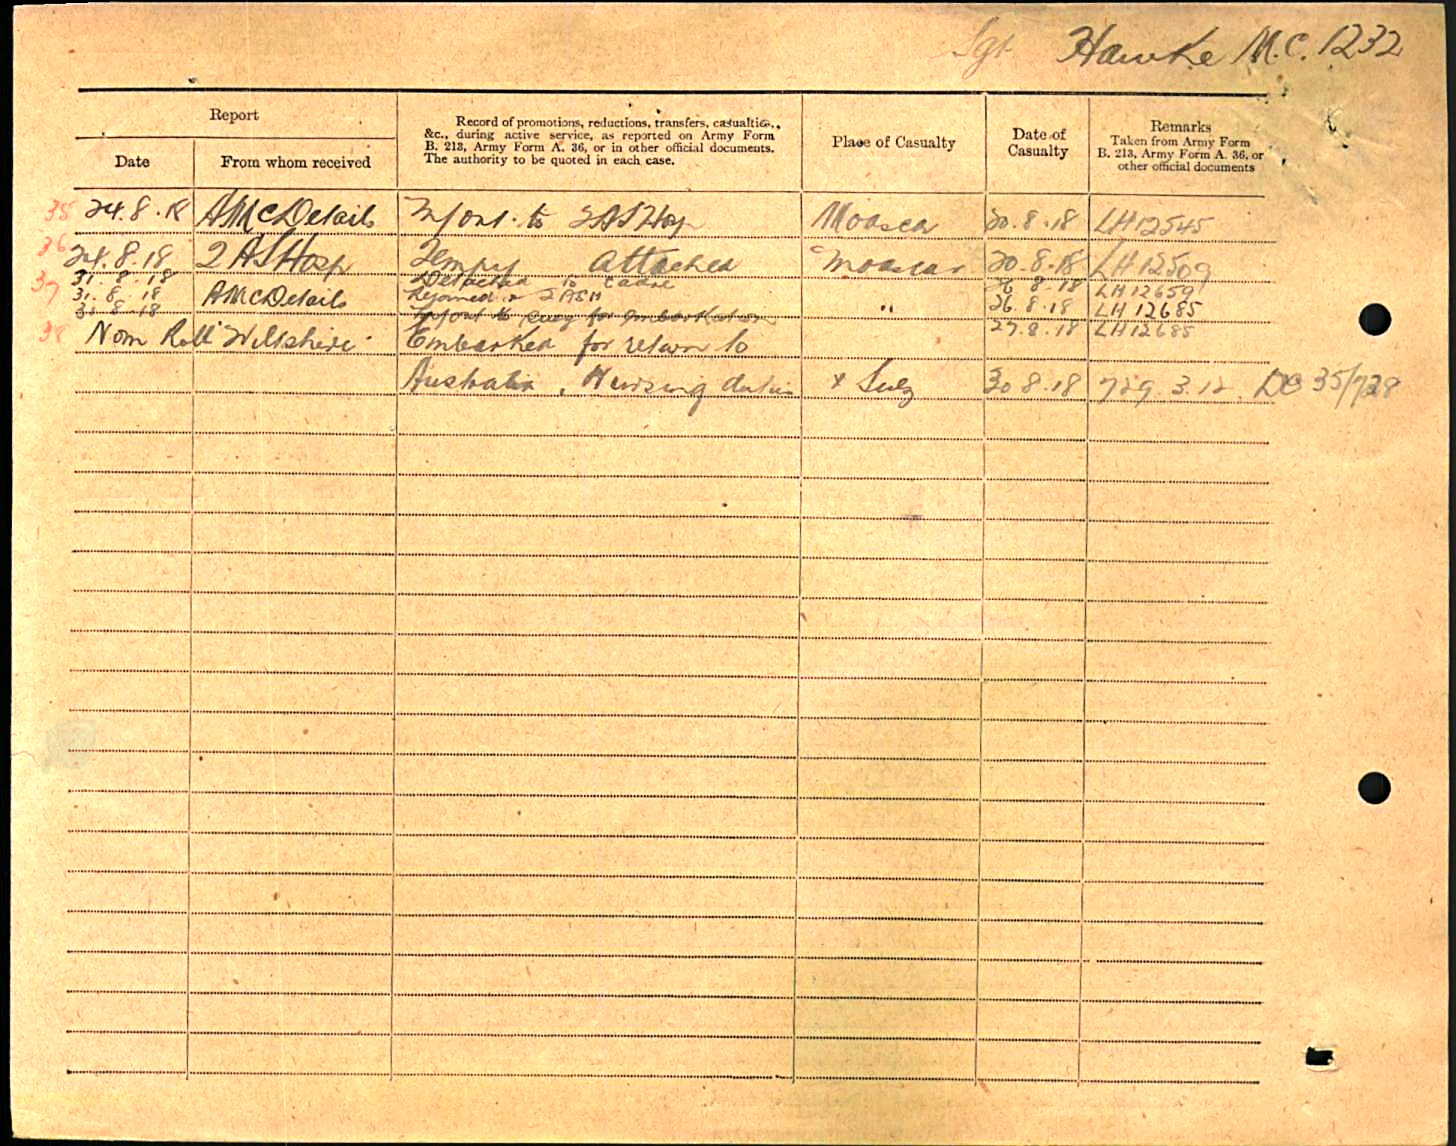 Sgt Hawke M.C. 1232
Report
Record of promotions, reductions, transfers, casualties,
&c., during active service, as reported on Army Form
B. 213, Army Form A. 36, or in other official documents.
The authority to be quoted in each case.
Place of Casualty
Date of
Casualty
Remarks
Taken from Army Form
B. 213, Army Form A. 36, or
other official documents
Date
From whom received
35 24.8.18 AMC Details to 2 AS Hosp Moascar 20.8.18 LH 12545
36 24.8.18 2 AS Hosp Tempy attached Moascar 20.8.18 LH 12509
37 31.8.18 Detached to Cadre 26.8.18 LH 12659
31.8.18 AMC Details Rejoined 2 ASH " 26.8.18 LH 12685
31.8.18 for Embarkation 27.8.18 LH 12685
38 Nom Roll "Wiltshire" Embarked for return to
Australia, Nursing duties Suez 30.8.18 729.3.12. DO 35/728